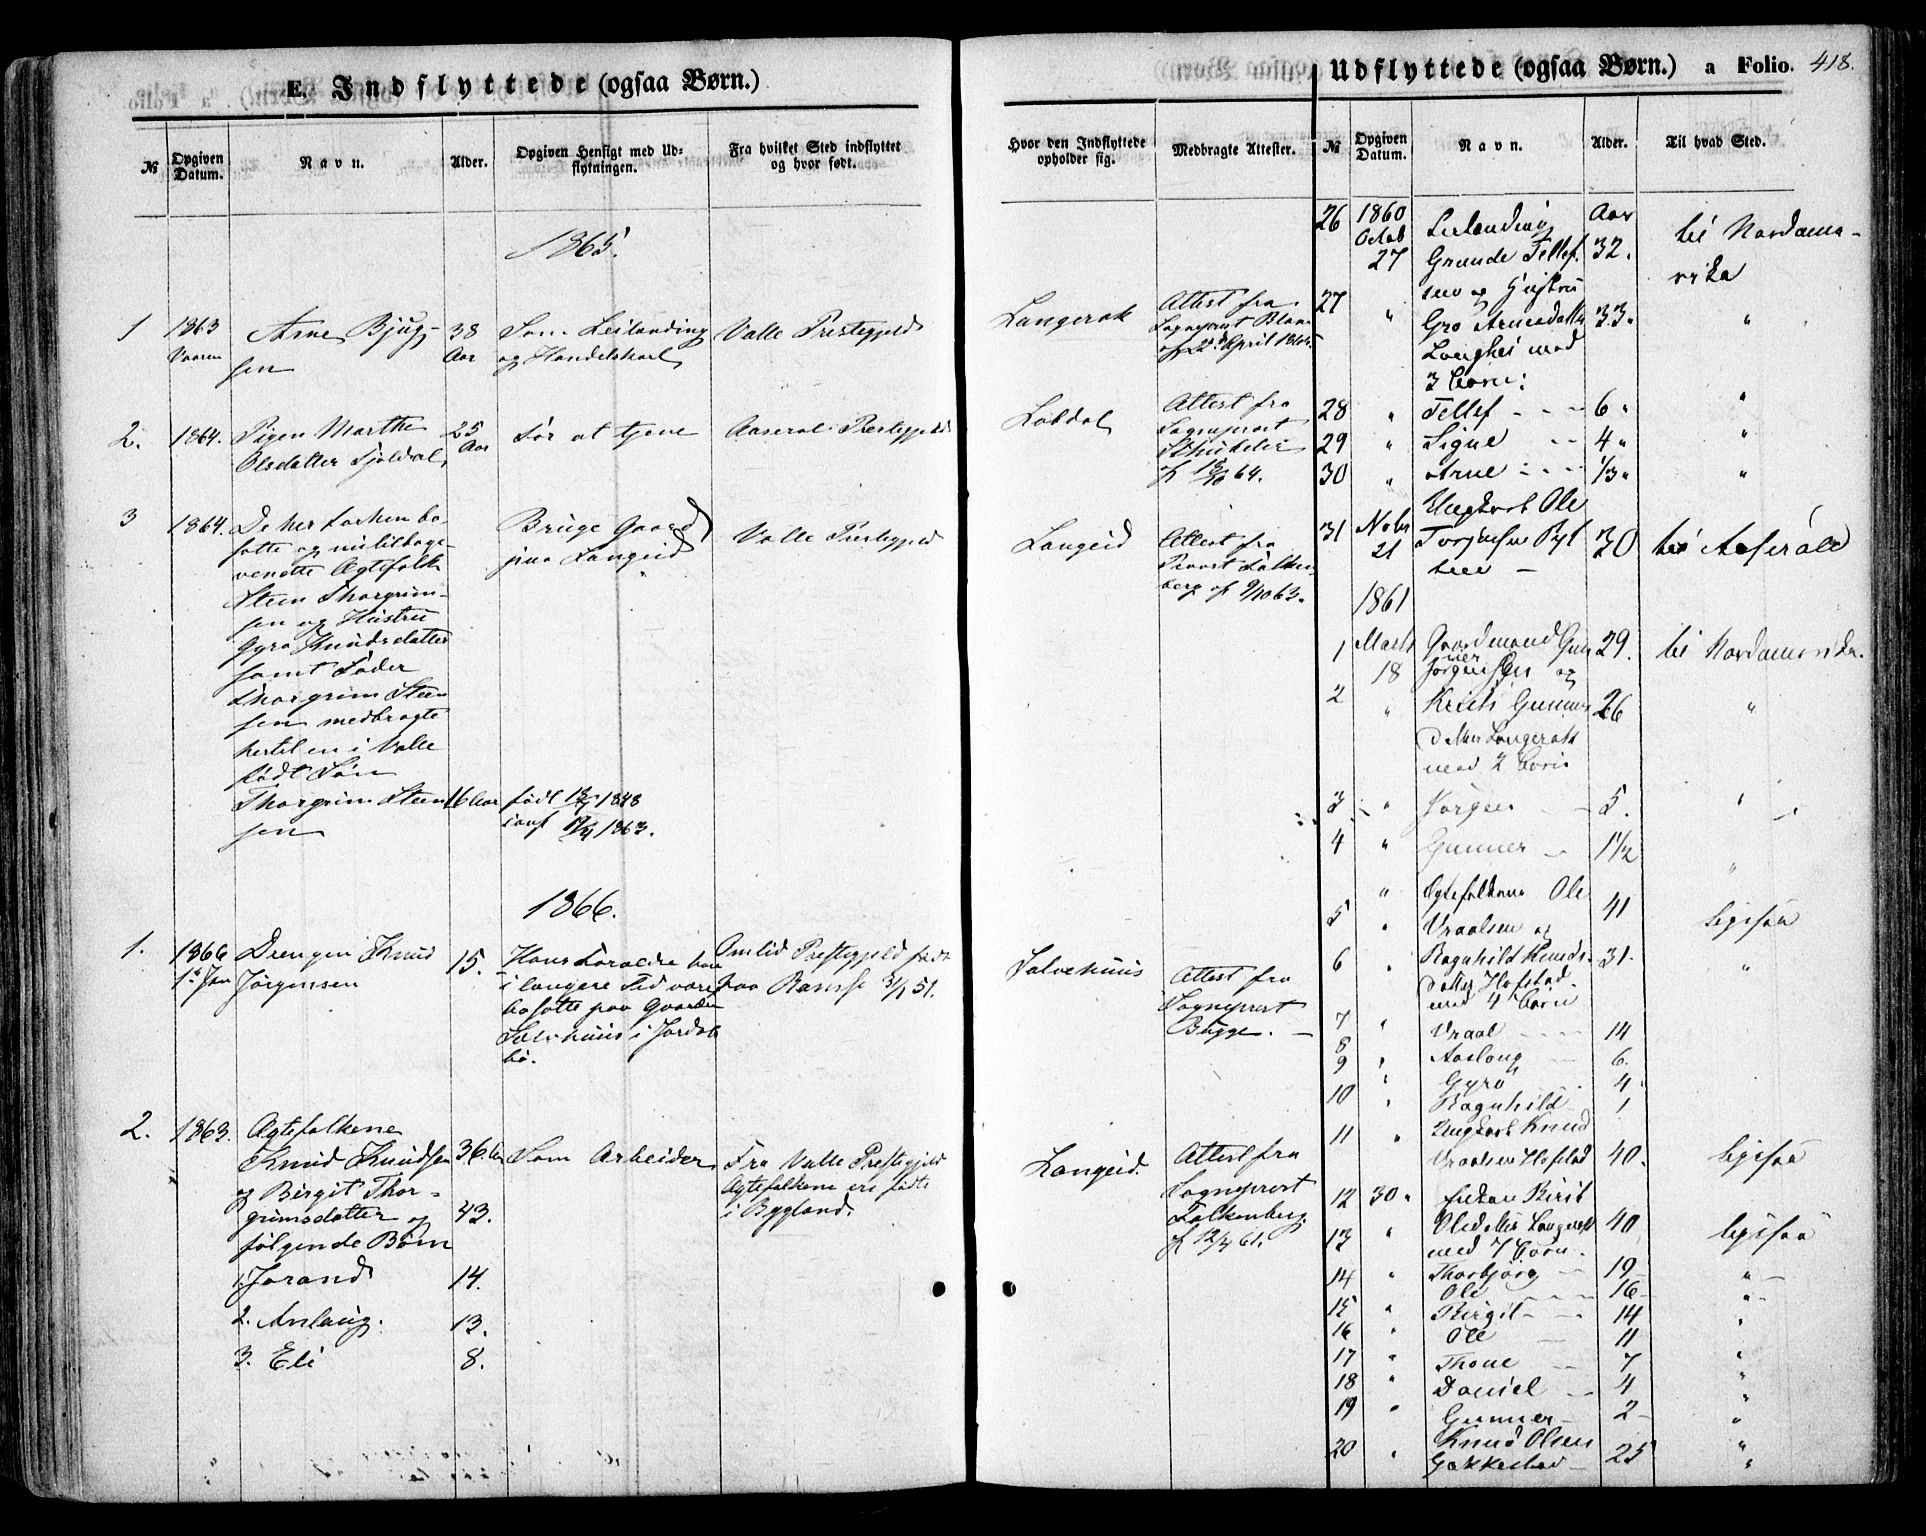 E. Indflyttede (ogsaa Børn.)
№
Opgiven Datum.
Navn.
Alder.
Opgiven Hensigt med Ud-
flytningen.
Fra hvilket Sted indflyttet
og hvor født.
1865.
1
1863
Arne Bjug-
sen
38
Aar
Som Leilænding
og Handelskarl
Valle Prestegjeld
2.
1864.
Pigen Marthe
Olsdatter
25
Aar
For at tjene
Aaseral Prestegjeld
3
1864.
De her forhen bo-
satte og nu tilbage-
vendte Ægtefolk
Steen Thorgrim-
sen og Hustru
Gyro Knudsdatter
samt Fader
Thorgrim Steen
sen medbragte
hertil en i Valle
født Søn
Thorgrim Steen
sen
16 Aar
Bruge Gaard
paa Langeid
født 1848
conf 1863.
Valle Prestegjeld
1866.
1.
1866
1ste Jan
Drengen Knud
Jørgensen
15.
Hans Forældre have
i længere Tid været
bosatte paa Gaarden
i Jordal
bø.
Omlid Prestegjeld født
paa 51.
2.
1863.
Ægtefolkene
Knud Knudsen
og Birgit Thor-
grimsdatter og
følgende Børn
36 Aar
43.
1. Jorand
14.
2. Anlaug.
13.
3. Eli
8.
Som Arbeider
Fra Valle Prestegjeld
Ægtefolkene ere fødte
i Bygland.
Hvor den Indflyttede
opholder sig.
Medbragte Attester.
Langerak
Attest fra
Sogneprest
April
Attest fra
Sogneprest
64.
Langeid
Attest fra
Provst Falken
berg af 9/10 63.
Attest fra
Sogneprest
Bugge.
Langeid.
Attest fra
Sogneprest
Falkenberg
61.
Udflyttede (ogsaa Børn.) a Folio. 418.
№
Opgiven Datum.
Navn.
Alder.
Til hvad Sted.
26
1860
Octob
27
Leilænding
Grunde Tellef.
sen og Hustru
Aar
32.
til Nordame-
rika
27
"
Gro Arnesdatter
med
3 Børn:
33.
"
28 " Tellef - - - 6 " "
29 " Signe - - 4 " "
30 " Arne - - - 1/3 " "
31
Nobr
21
Ungkarl Ole
Torjusen
30
til Aaserål
1861
1
Marts
18
Gaardmand Gun
ner
Jørgensen og
29.
til Nordamerika.
2
"
Gunners
datter Langerak
med 2 Børn
26
"
3 " Jørgen - 5. "
4 " Gunner - 1 1/2 "
5
"
Ægtefolkene Ole
Vraalsen og
41
ligesaa
6
"
Ragnhild Knuds-
datter Hofstad
med 4 Børn
31.
"
7 " Vraal - - - 14
8 " Aaslaug - 6.
9 " Gyro 4
10 " Ragnhild 1
11
"
Ungkarl Knud
Vraalsen Hofstad
40.
ligesaa
12
30 "
Enken Birit
13
"
Olsdatter Langerak
med 7 Børn.
40
ligesaa
14 " Thorbjørg - 19 "
Ole - - - 16 "
15 " Birgit - - - 14 "
16 " Ole - 11
17 " Thone - 7 "
18 " Daniel - - 4 "
19 " Gunner - 2 "
20
"
Knud Olsen
25
"